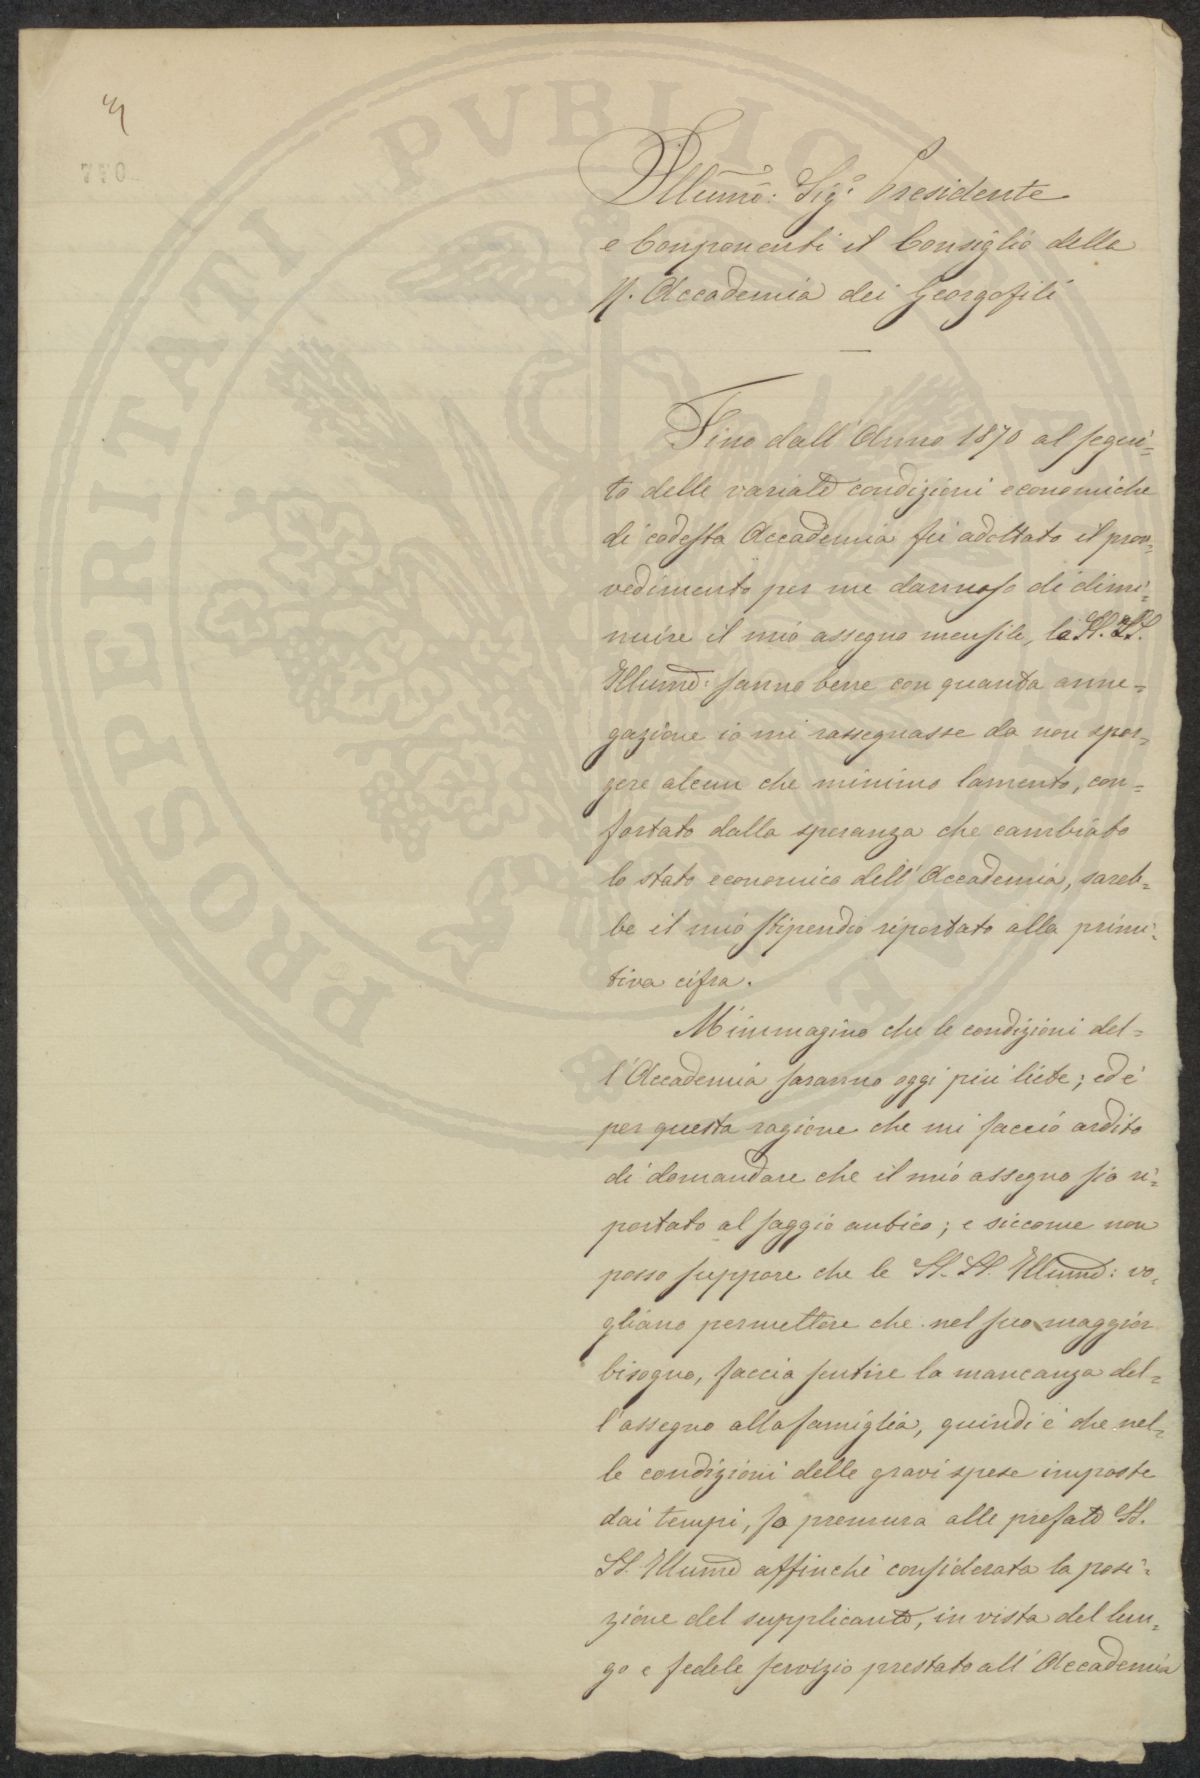 740
Illumo: Sigr Presidente
e Componenti il Consiglio della
R. Accademia dei Georgofili
Fino dall'Anno 1870 al segui=
to delle variate condizioni economiche
di codesta Accademia fù adottato il prov=
vedimento per me dannoso di dimi=
nuire il mio assegno mensile, le SS. LL.
Illume: sanno bene con quanta anne=
gazione io mi rassegnasse da non spor=
gere alcun che minimo lamento, con=
fortato dalla speranza che cambiato
lo stato economico dell'Accademia, sareb=
be il mio stipendio riportato alla primi=
tiva cifra.
M'immagino che le condizioni del=
l'Accademia saranno oggi più liete; ed è
per questa ragione che mi faccio ardito
di domandare che il mio assegno sia ri=
portato al saggio antico; e siccome non
posso suppore che le SS. LL. Illume: vo=
gliano permettere che nel suo maggior
bisogno, faccia sentire la mancanza del=
l'assegno alla famiglia, quindi è che nel=
le condizioni delle gravi spese imposte
dai tempi, fo premura alle prefate SS.
LL. Illume affinchè considerata la posi=
zione del supplicante, in vista del lun=
go e fedele servizio prestato all'Accademia
PROSPERITATI PVBLICAE AVGENDAE